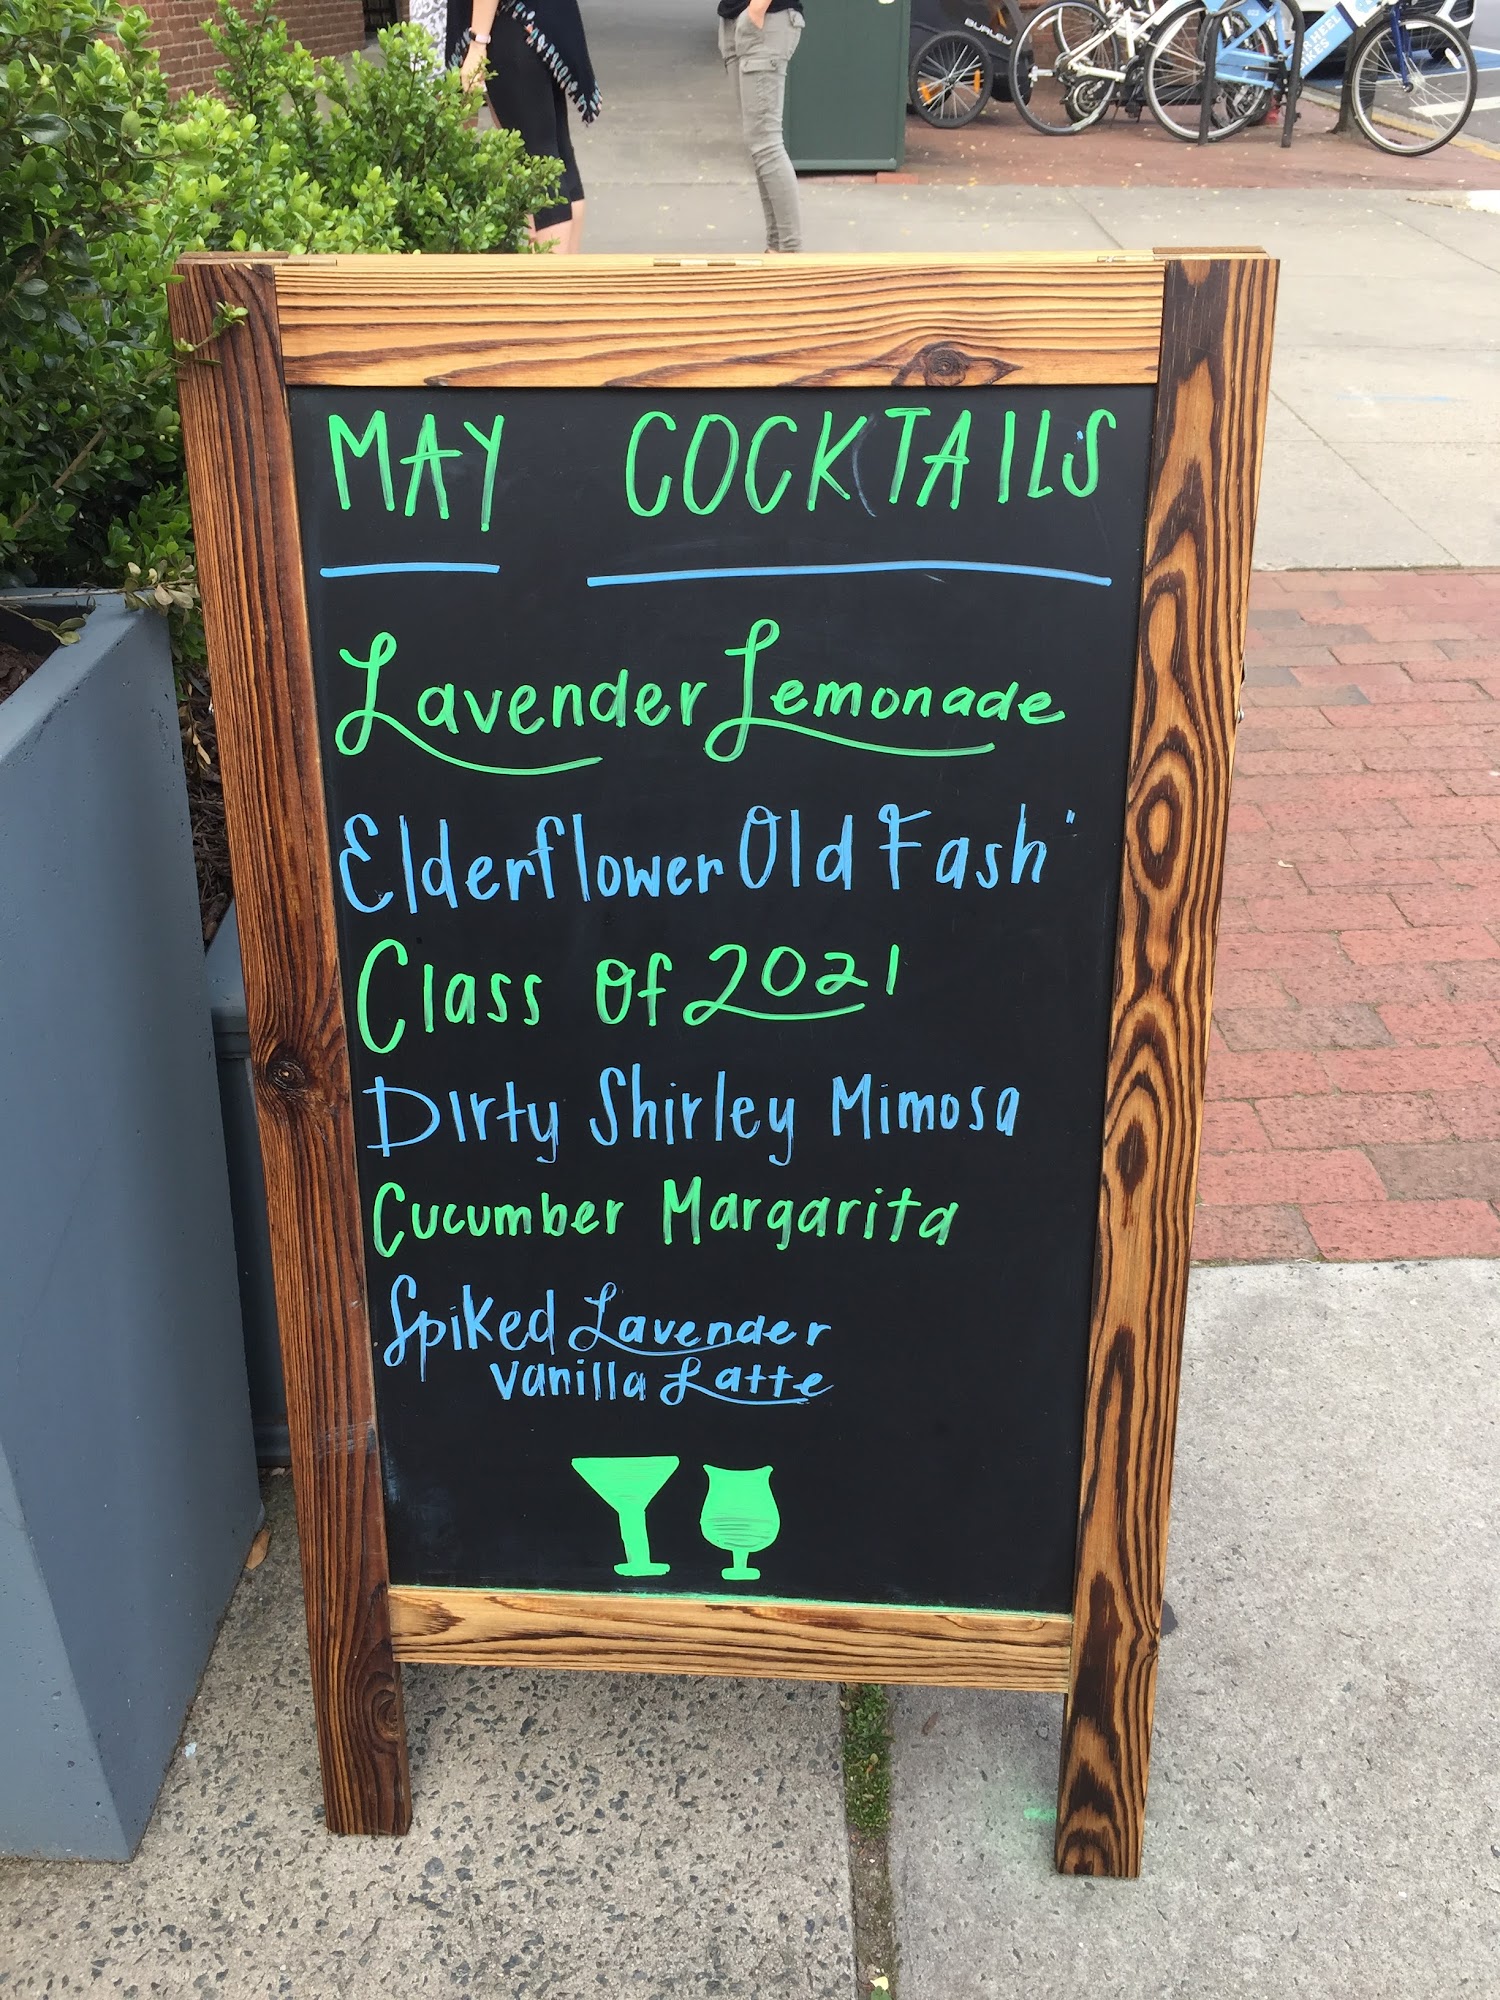 BURLEY
WHEEL
BIKES
MAY COCKTAILS
Lavender Lemonade
Elderflower Old Fash"
Class of 2021
Dirty Shirley Mimosa
Cucumber Margarita
Spiked Lavender
Vanilla Latte